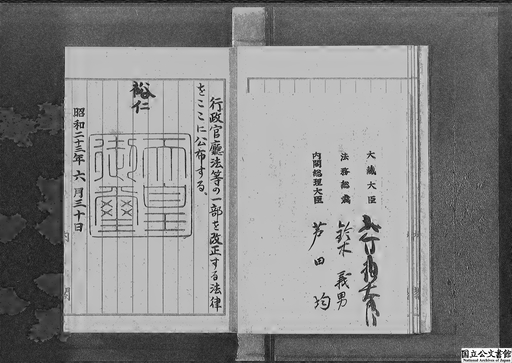 行政官廳法等の一部を改正する法律
をここに公布する。
裕仁
天皇
御璽
昭和二十三年六月三十日
大藏大臣
法務総裁 鈴木義男
内閣総理大臣 芦田均
国立公文書館
National Archives of Japan